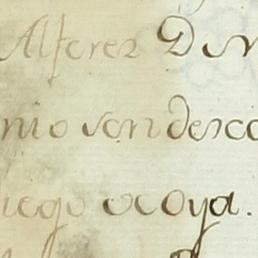 Alferez Don
nio son desco
iego ocoya.